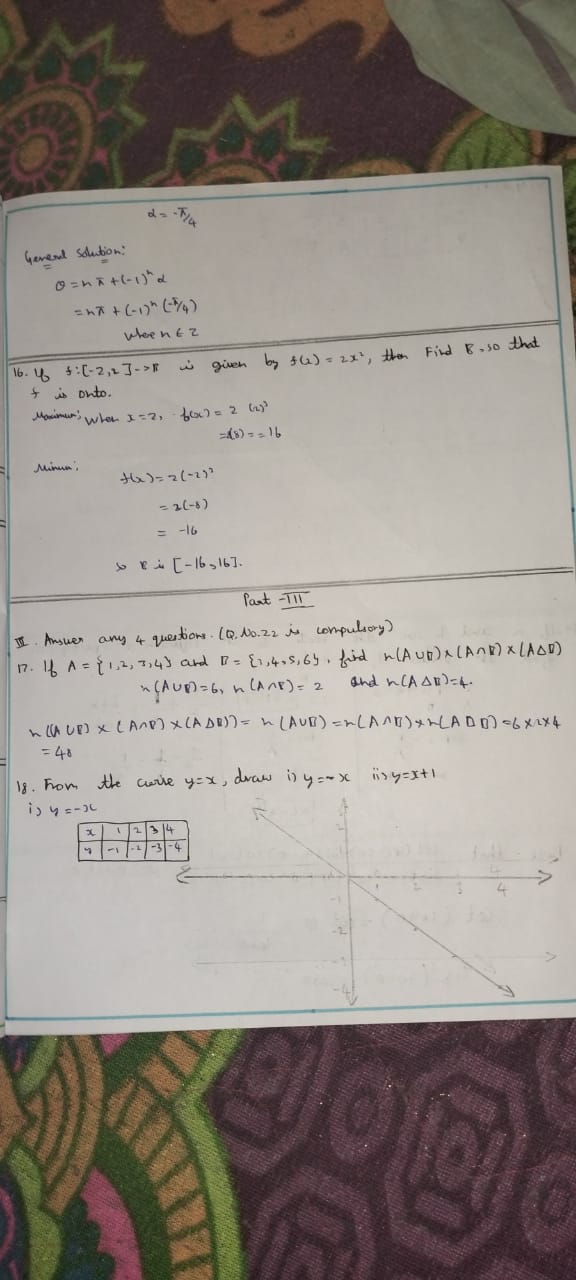 α = -π/4
General Solution:
θ = nπ + (-1)ⁿ α
= nπ + (-1)ⁿ (-π/4)
where n ∈ Z
16. If f: [-2,2] -> B is given by f(x) = 2x³, then Find B, so that
f is onto.
Maximum: When x = 2, f(x) = 2 (2)³
= 2(8) = = 16
Minum:
f(x) = 2(-2)³
= 2(-8)
= -16
so B is [-16, 16].
Part - III
III. Answer any 4 questions. (Q. No. 22 is compulsory)
17. If A = {1,2,3,4} and B = {3,4,5,6}, find n(A∪B) × (A∩B) × (A∆B)
n(A∪B) = 6, n(A∩B) = 2 and n(A∆B) = 4.
n((A∪B) × (A∩B) × (A∆B)) = n(A∪B) = n(A∩B) × n(A∆B) = 6×2×4
= 48
18. From the curve y = x, draw i) y = -x ii) y = x+1
i) y = -x
x 1 2 3 4
y -1 -2 -3 -4
1 2 3 4
-1
-2
-3
-4